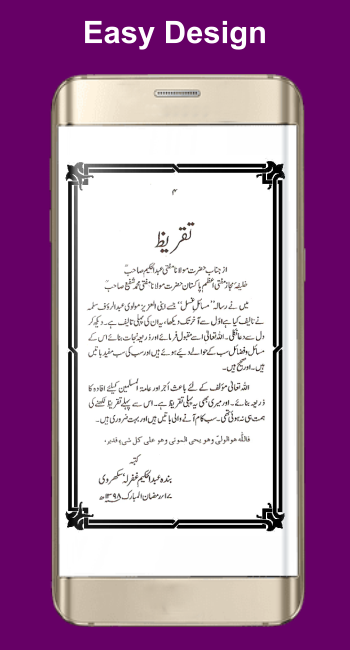 Easy Design
۴
تقریظ
از جناب حضرت مولانا مفتی عبدالحکیم صاحبؒ
خلیفہ مجاز مفتی اعظم پاکستان حضرت مولانا مفتی محمد شفیع صاحبؒ
میں نے رسالہ "مسائل غسل" جسے ابنی العزیز مولوی عبدالرؤف سلمہ
نے تالیف کیا ہے اوّل سے آخر تک دیکھا، یہ ان کی پہلی تالیف ہے۔ دیکھ کر
دل سے دعا نکلی۔ اللہ تعالیٰ اسے مقبول فرمائے اور ذریعہ نجات بنائے اس کے
مسائل و فضائل سب کے حوالے دیئے ہوئے ہیں اور سب کی سب مفید باتیں
ہیں۔ اور صحیح ہیں۔
اللہ تعالیٰ مؤلف کے لئے باعث اجر اور عامۃ المسلمین کیلئے افادہ کا
ذریعہ بنائے۔ اور میری بھی یہ پہلی تقریظ ہے۔ اس سے پہلے تقریظ لکھنے کی
ہمت ہی نہ ہوئی تھی۔ سب کام آنے والی باتیں ہیں اور بہت ضروری ہیں۔
فاللّٰه هو الولیّ وهو یحی الموتی وهو علی کل شیء قدیر.
کتبہ
بندہ عبدالحکیم غفرلہ، سکھروی
۱۷؍رمضان المبارک ۱۳۹۸ھ